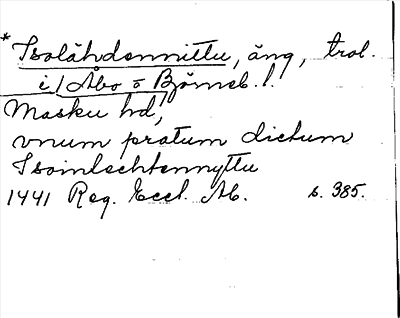 * Isolähdennittu, äng, trol.
i Åbo o Björneb. l.
Masku hd,
vnum pratum dictum
Isoimlechtennyttu
1441 Reg. Eccl. Ab. s. 385.